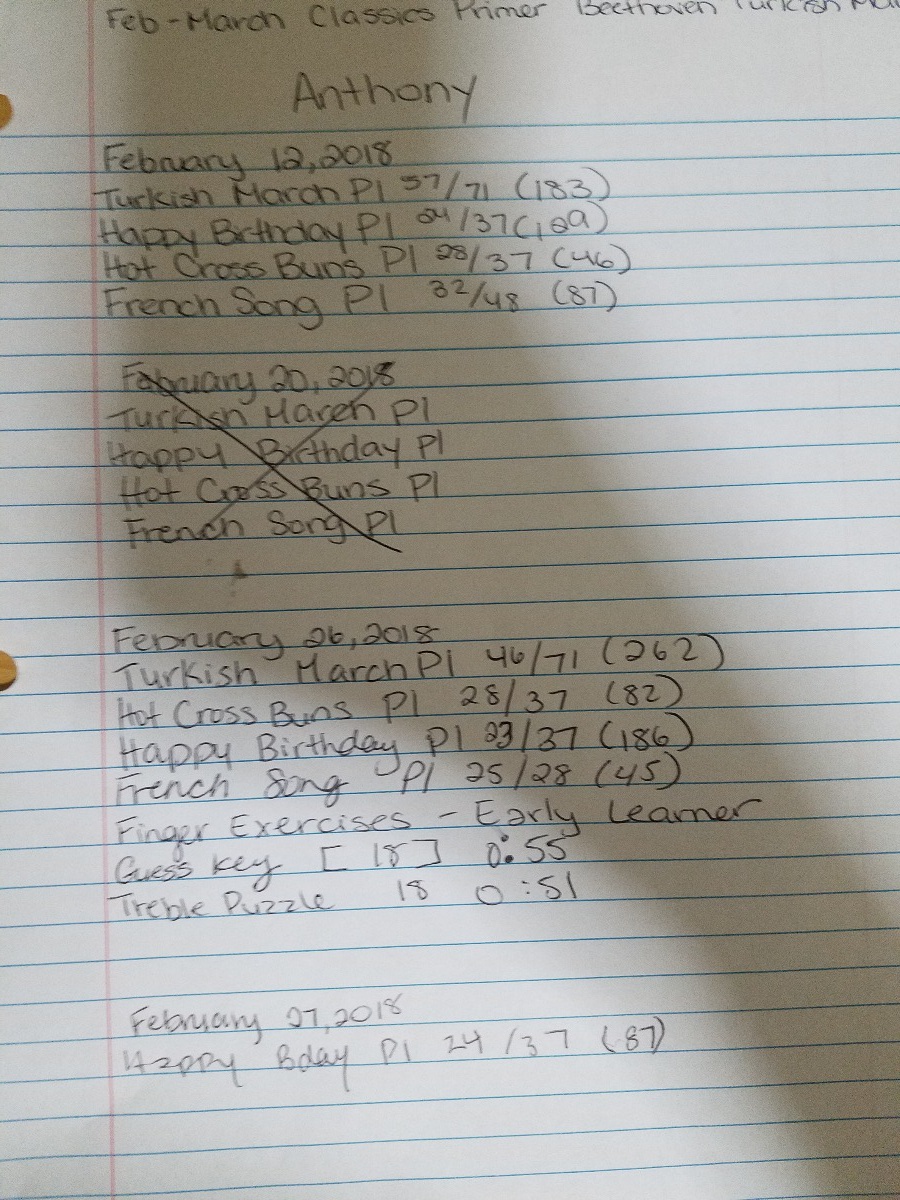 Feb-March Classics Primer Beethoven Turkish
Anthony
February 12, 2018
Turkish March P1 57/71 (183)
Happy Birthday P1 24/37
Hot Cross Buns P1 28/37 (46)
French Song P1 32/48 (87)
February 20, 2018
Turkish March P1
Happy Birthday P1
Hot Cross Buns P1
French Song P1
February 26, 2018
Turkish March P1 46/71 (262)
Hot Cross Buns P1 28/37 (82)
Happy Birthday P1 23/37 (186)
French Song P1 25/28 (45)
Finger Exercises - Early Learner
Guess key [18] 0:55
Treble Puzzle 18 0:51
February 27, 2018
Happy Bday P1 24/37 (87)